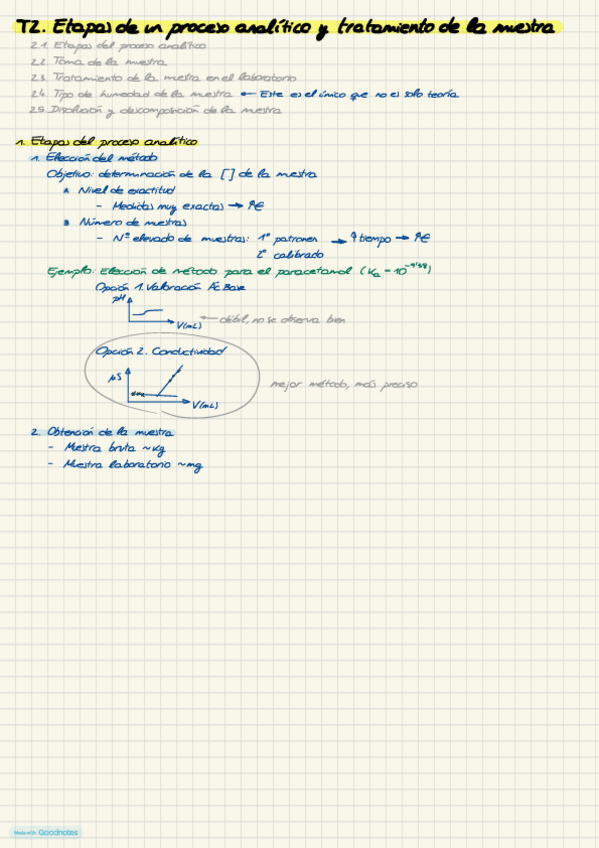 T2. Etapas de un proceso analítico y tratamiento de la muestra
2.1. Etapas del proceso analítico
2.2. Toma de la muestra
2.3. Tratamiento de la muestra en el laboratorio
2.4. Tipo de humedad de la muestra ← Este es el único que no es solo teoría
2.5. Disolución y descomposición de la muestra
1. Etapas del proceso analítico
1. Elección del método
Objetivo: determinación de la [] de la mestra
A Nivel de exactitud
- Medidas muy exactas → ↑€
B Número de muestras
- Nº elevado de muestras: 1º patrones → ↑tiempo → ↑€
2º calibrado
Ejemplo: Elección de método para el paracetamol (Ka = 10^-9'38)
Opción 1. Valoración Ác Base
pH
V(mL)
← débil, no se observa bien
Opción 2. Conductividad
μS
V(mL)
mejor método, más preciso
2. Obtención de la muestra
- Muestra bruta ~kg
- Muestra laboratorio ~mg
Made with Goodnotes